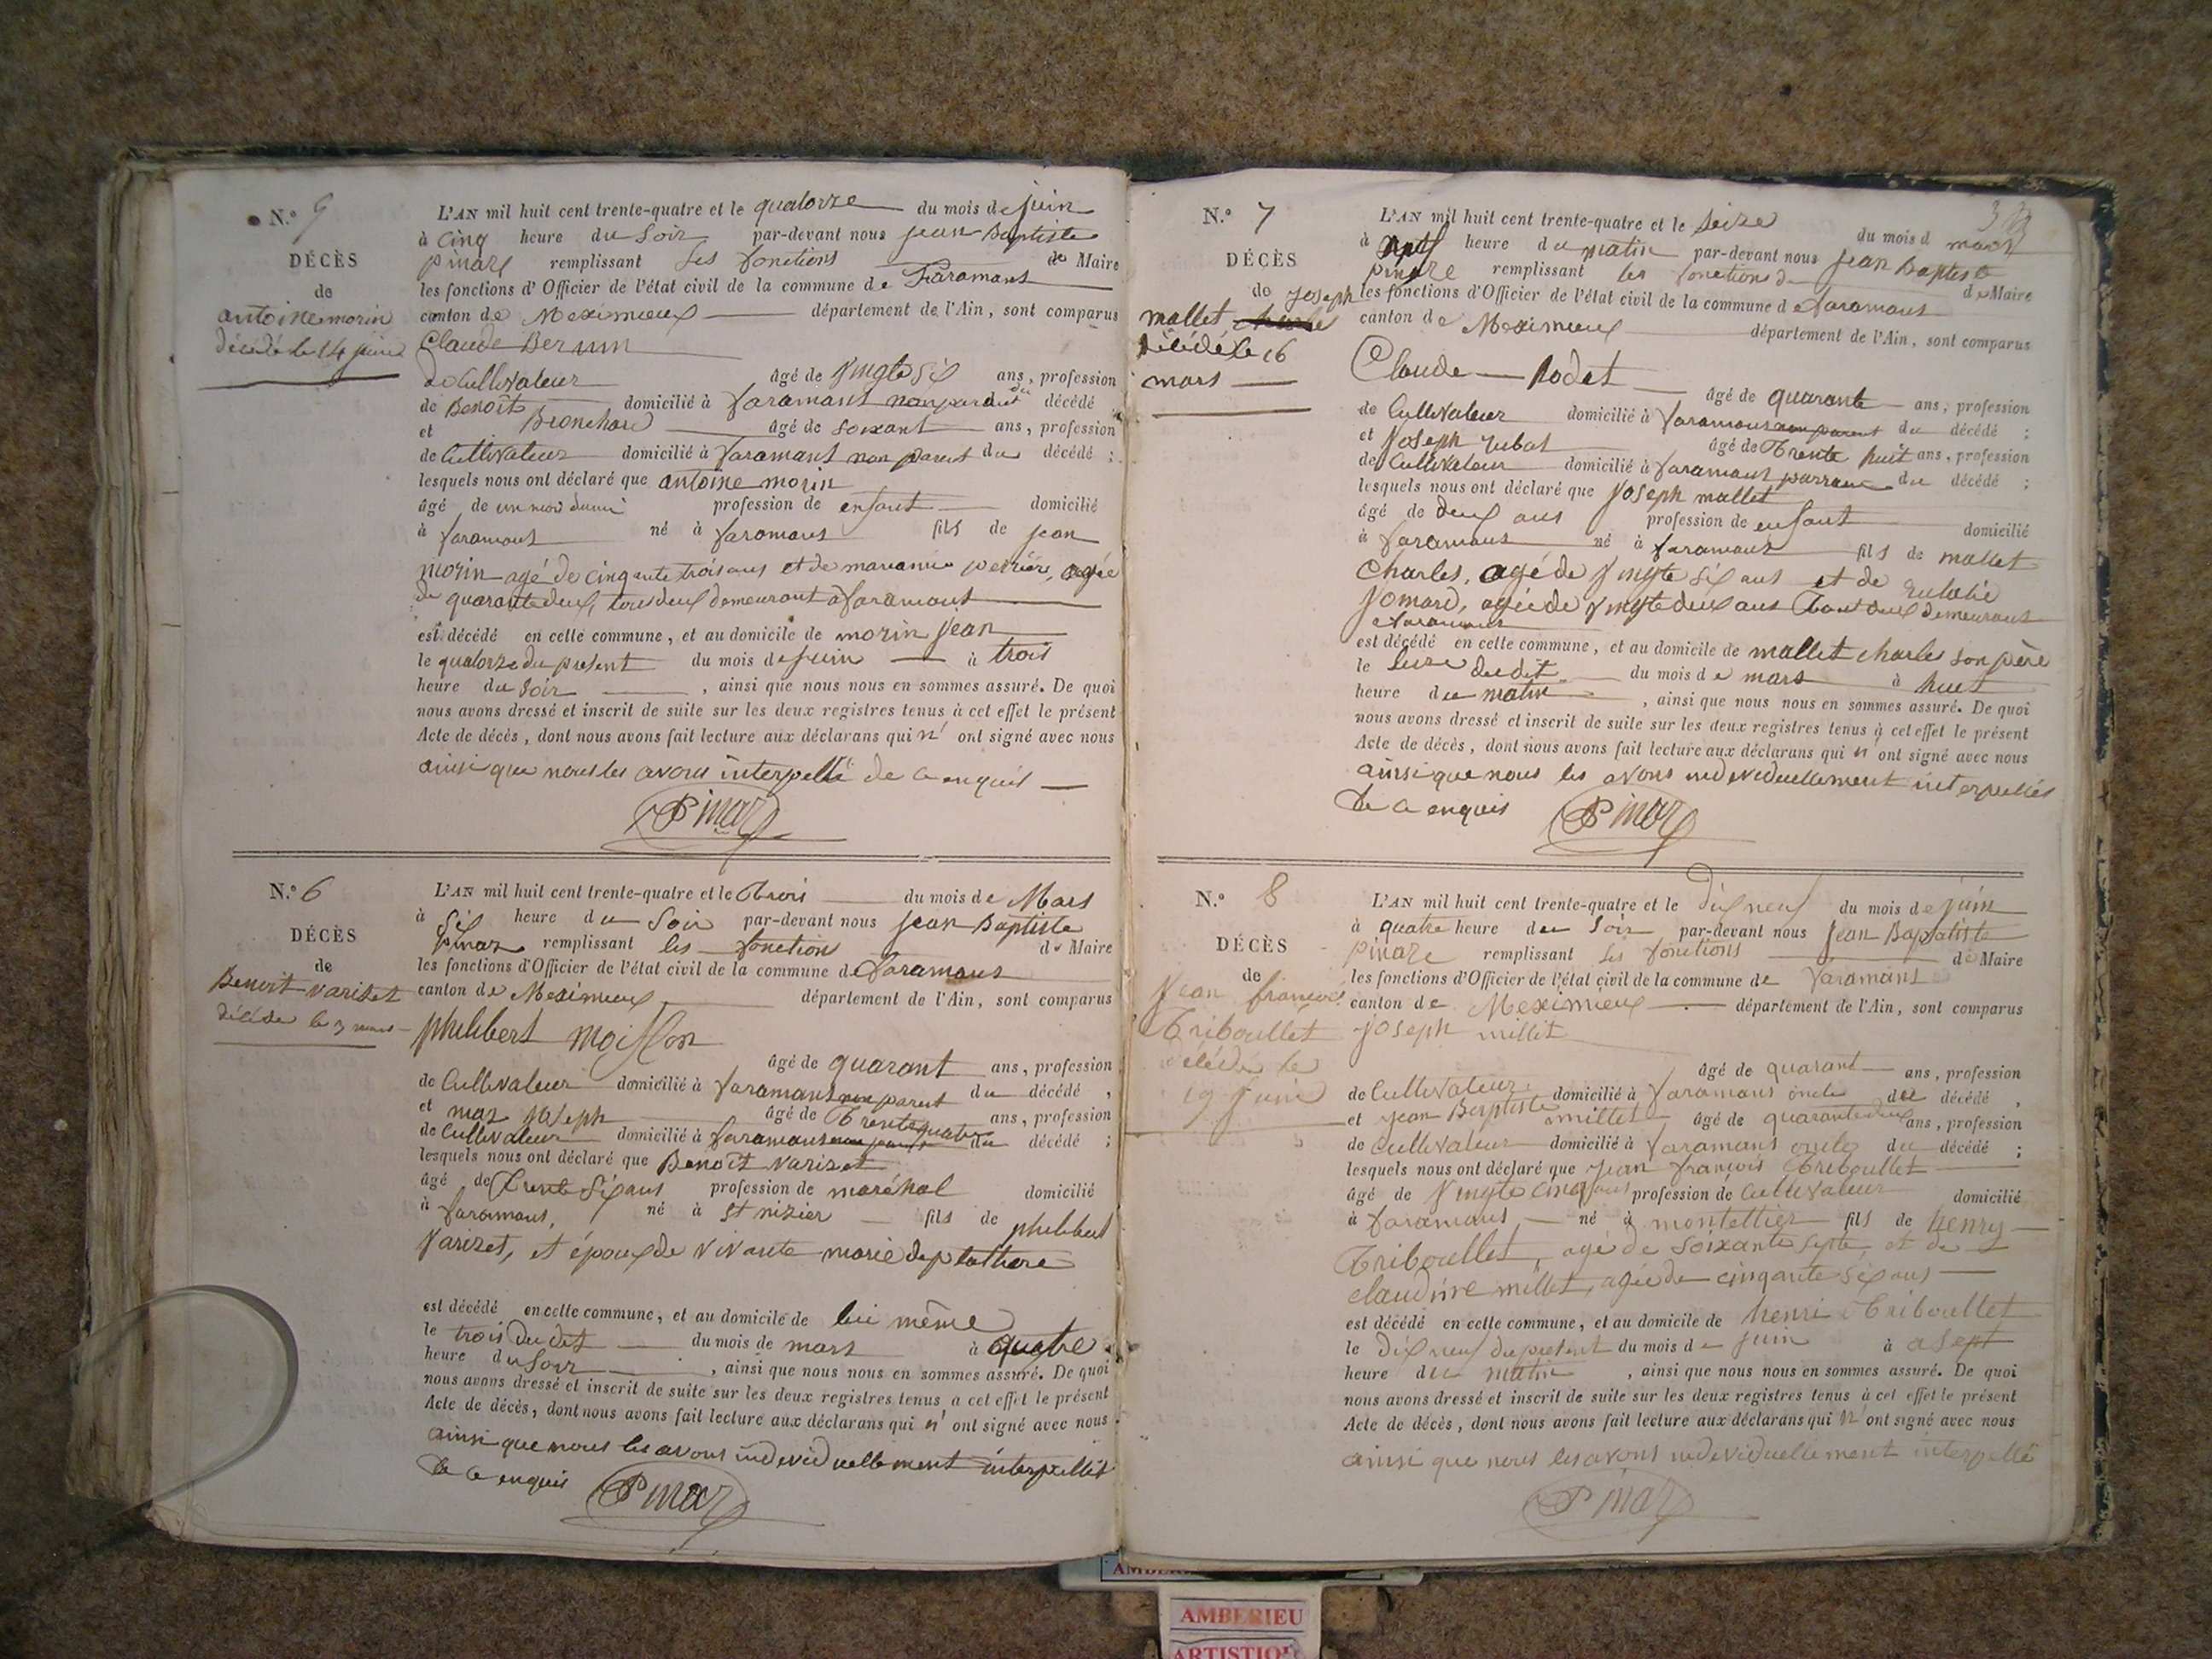 N.° 9
DÉCÈS
de
antoine morin
décédé le 14 juin
L'AN mil huit cent trente-quatre et le quatorze du mois de juin
à cinq heure du soir par-devant nous jean Baptiste
pinaz remplissant les fonctions de Maire
les fonctions d'Officier de l'état civil de la commune de Faramans
canton de Meximieux département de l'Ain, sont comparus
Claude
de Cultivateur âgé de vingte six ans, profession
de Benoît domicilié à faramans décédé
et âgé de soixant ans, profession
de Cultivateur domicilié à faramans non parent du décédé ;
lesquels nous ont déclaré que antoine morin
âgé de un mois profession de enfant domicilié
à faramans né à faramans fils de jean
morin agé de cinquante trois ans et de perrière, agée
de quarante deux, tous deux demeurant a faramans
est décédé en cette commune, et au domicile de morin jean
le quatorze du present du mois de juin à trois
heure du soir , ainsi que nous nous en sommes assuré. De quoi
nous avons dressé et inscrit de suite sur les deux registres tenus à cet effet le présent
Acte de décès, dont nous avons fait lecture aux déclarans qui n' ont signé avec nous
ainsi que nous les avons interpellé de ce enquis
Pinaz
N.° 6
DÉCÈS
de
Benoit varizet
décédé le 3 mars
L'AN mil huit cent trente-quatre et le trois du mois de Mars
à six heure du soir par-devant nous jean Baptiste
pinaz remplissant les fonction de Maire
les fonctions d'Officier de l'état civil de la commune de faramans
canton de Meximieux département de l'Ain, sont comparus
philibert moisson
âgé de quarant ans, profession
de Cultivateur domicilié à faramans non parent du décédé ,
et maz joseph âgé de trente quatre ans, profession
de Cultivateur domicilié à faramans du décédé ;
lesquels nous ont déclaré que Benoît varizet
âgé de trente six ans profession de maréchal domicilié
à faramans, né à st nizier fils de philibert
varizet, et époux de vivante marie deplattiere
est décédé en cette commune, et au domicile de lui même
le trois dudit du mois de mars à quatre
heure du soir , ainsi que nous nous en sommes assuré. De quoi
nous avons dressé et inscrit de suite sur les deux registres tenus à cet effet le présent
Acte de décès, dont nous avons fait lecture aux déclarans qui n' ont signé avec nous
ainsi que nous les avons individuellement interpellés
de ce enquis Pinaz
N.° 7
DÉCÈS
de joseph
mallet
décédé le 16
mars
L'AN mil huit cent trente-quatre et le seize du mois d mars
à heure du matin par-devant nous jean Baptiste
pinaz remplissant les fonctions d de Maire
les fonctions d'Officier de l'état civil de la commune de faramans
canton de Meximieux département de l'Ain, sont comparus
Claude Rodet âgé de quarante ans, profession
de Cultivateur domicilié à faramans non parent du décédé ;
et joseph jubat âgé de trente huit ans, profession
de Cultivateur domicilié à faramans parrain du décédé ;
lesquels nous ont déclaré que joseph mallet
âgé de deux ans profession de enfant domicilié
à faramans né à faramans fils de mallet
Charles, agé de vingte six ans et de Eulalie
jomard, agée de vingte deux ans tout deux demeurant
a faramans
est décédé en cette commune, et au domicile de mallet charles son père
le seize dudit du mois de mars à huit
heure du matin , ainsi que nous nous en sommes assuré. De quoi
nous avons dressé et inscrit de suite sur les deux registres tenus à cet effet le présent
Acte de décès, dont nous avons fait lecture aux déclarans qui n' ont signé avec nous
ainsi que nous les avons individuellement interpellés
de ce enquis Pinaz
N.° 8
DÉCÈS
de
jean françois
triboullet
décédé le
19 juin
L'AN mil huit cent trente-quatre et le dix neuf du mois de juin
à quatre heure du soir par-devant nous jean Baptatiste
pinaz remplissant les fonctions de Maire
les fonctions d'Officier de l'état civil de la commune de faramans
canton de Meximieux département de l'Ain, sont comparus
joseph millet
âgé de quarant ans, profession
de Cultivateur domicilié à faramans oncle du décédé ,
et jean Baptiste millet âgé de quarante deux ans, profession
de Cultivateur domicilié à faramans oncle du décédé ;
lesquels nous ont déclaré que jean françois triboullet
âgé de vingte cinq ans profession de Cultivateur domicilié
à faramans né à montellier fils de henry
triboullet, agé de soixante septe et de
claudine millet, agée de cinqante six ans
est décédé en cette commune, et au domicile de henri triboullet
le dix neuf du présent du mois de juin à a sept
heure du matin , ainsi que nous nous en sommes assuré. De quoi
nous avons dressé et inscrit de suite sur les deux registres tenus à cet effet le présent
Acte de décès, dont nous avons fait lecture aux déclarans qui n' ont signé avec nous
ainsi que nous les avons individuellement interpellé
Pinaz
AMBERIEU
ARTISTIQU